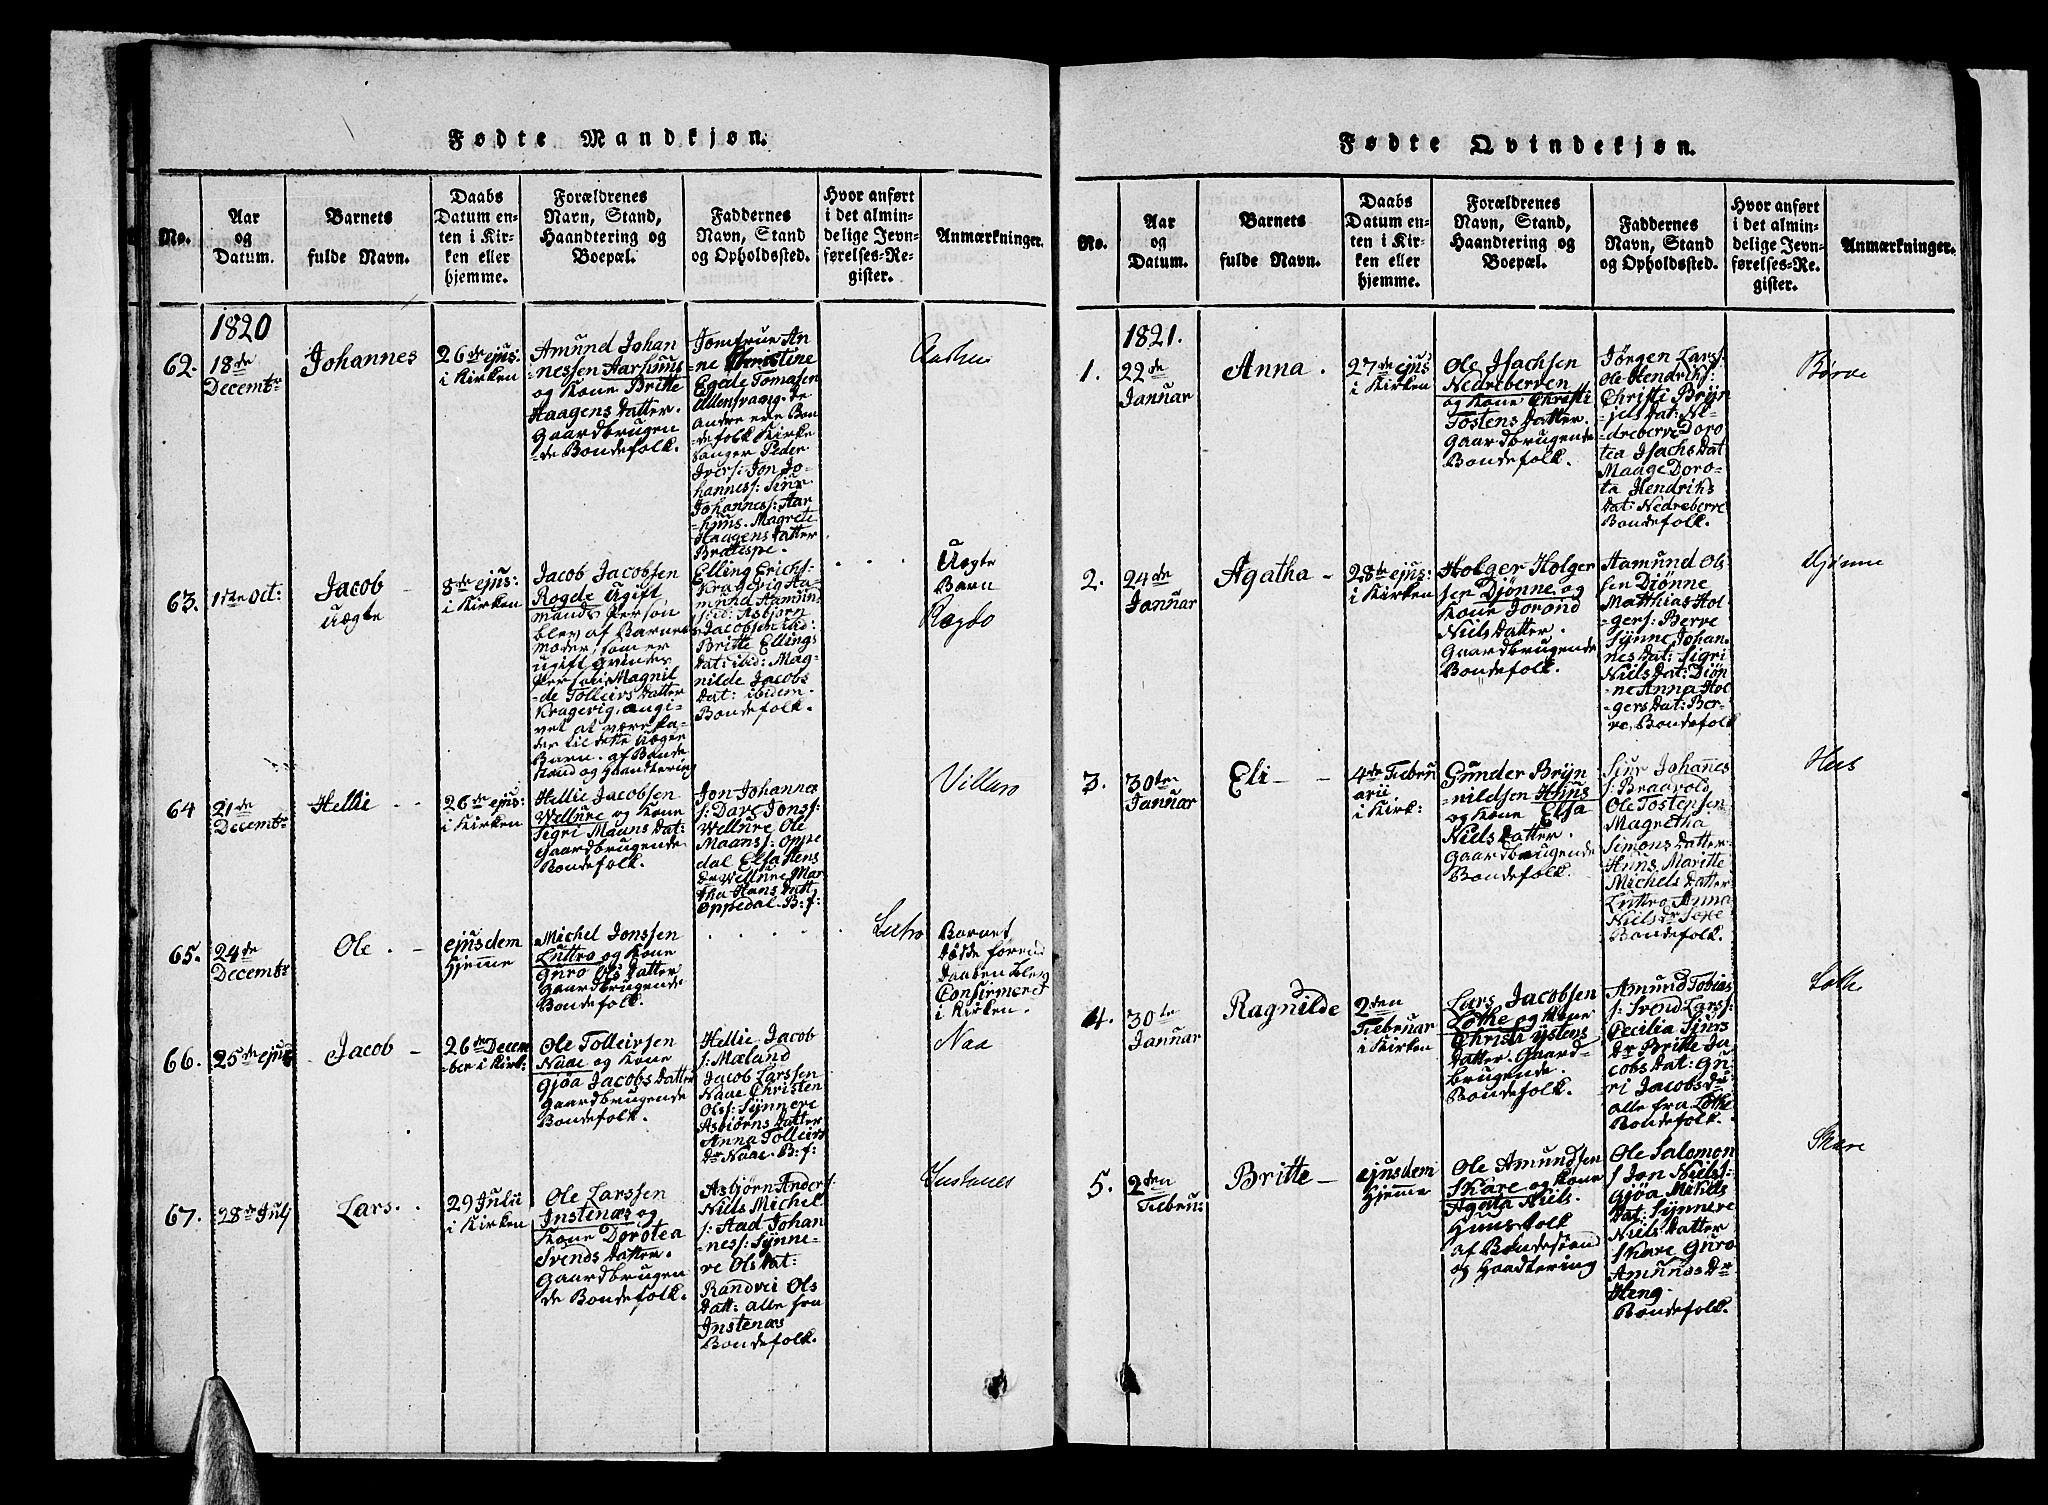 Fødte Mandkjøn.
No.
Aar
og
Datum.
Barnets
fulde Navn.
Daabs
Datum en-
ten i Kir-
ken eller
hjemme.
Forældrenes
Navn, Stand,
Haandtering og
Boepæl.
Faddernes
Navn, Stand
og Opholdssted.
Hvor anført
i det almin-
delige Jevn-
førelses-Re-
gister.
Anmærkninger.
1820
62.
18de
Decembr
Johannes
26de ejus:
i Kirken
Amund Johan
nessen Aarhuus
og Kone Britte
Haagens Datter.
Gaardbrugen
de Bondefolk.
Jomfrue An
ne Christine
Egede Tomasen
Ullensvang. de
andre ere Bon
defolk Kirke
sanger Peder
Ivers: Jon Jo-
hanness: Siur
Johanness: Aar
huus. Magrete
Haagens Datter
Bratespe.
63.
1ste Oct:
Jacob
uægte
8de ejus:
i Kirken
Jacob Jacobsen
Rogde Ugift
mands Person
blev af Barnets
Moder, som er
ugift Qvindes
Person Magnil
de Tolleivs Datter
Kragevig, angi-
vet at være Fa-
der til dette Uægte
Barn. af Bonde
stand og Haandtering
Elling Erichs-
Kragevig Aa-
mund Aamun
s: id: Asbjørn
Jacobsen ibid:
Britte Ellings
Dat: ibid: Mag-
nilde Jacobs
Dat: ibidem.
Bondefolk.
Uægte
Barn
64
21de
Decembr
Hellie
26de ejus:
i Kirken
Hellie Jacobsen
Wellure og Kone
Sigri Maans Dat:
Gaardbrugende
Bondefolk.
Jon Johannes
s: Dare Jonss:
Wellure Ole
Maanss: Oppe
dal Elsa Hens
Dr Wellure Mar
tha Hans Datt
Oppedal. B: f:
65.
24de
Decembr
Ole
ejusdem
Hjemme
Michel Jonssen
Luttro og Kone
Guro Ols Datter
Gaardbrugende
Bondefolk.
Lutro
Barnet
døde førend
Daaben blev
Confirmeret
i Kirken.
66.
25de ejus
Jacob
26de Decem
ber i Kirk:
Ole Tolleivsen
Naae og Kone
Gjøa Jacobs Datter
Gaardbrugende
Bondefolk.
Hellie Jacob
s: Mæland
Jacob Larssen
Naae Christen
Olss: Synneve
Asbiørns Datter
Anna Tolleivs
Dr Naae. B: f:
Naa
67.
28de July
Lars.
29 Julii
i Kirken
Ole Larssen
Instenæs og
Kone Dorotea
Svends Datter.
Gaardbrugen
de Bondefolk.
Asbjørn Anders:
Niels Michel
s: Aad Johan
ness: Synne-
ve Ols Dat:
Randvei Ols
Datt: alle fra
Instenæs
Bondefolk.
Fødte Qvindekjøn.
No.
Aar
og
Datum.
Barnets
fulde Navn.
Daabs
Datum en-
ten i Kir-
ken eller
hjemme.
Forældrenes
Navn, Stand,
Haandtering og
Boepæl.
Faddernes
Navn, Stand
og Opholdssted.
Hvor anført
i det almin-
delige Jevn-
førelses-Re-
gister.
Anmærkninger.
1821.
1.
22de
Januar
Anna.
27de ejus
i Kirken
Ole Isachsen
Nedreberven
og Kone Christi
Tostens Datter.
Gaardbrugende
Bondefolk.
Jørgen Larss:
Ole Hendriks:
Christi Bryn
juls Dat: Ne-
dreberve Doro
tea Isachs Dat
Maage Doro-
ta Hendriks
Dat: Nedreberve
Bondefolk.
Børve
2.
24de
Januar
Agatha
28de ejus:
i Kirken
Holger Holger
sen Djønne og
Kone Jorond
Niels Datter.
Gaardbrugende
Bondefolk.
Aamund Ol
sen Diønne
Matthias Hol
gers: Berve
Synne Johan-
nes Dat: Sigri
Niels Dat: Diøn
ne Anna Hol
gers Dat: Ber-
ve, Bondefolk
Djønne
3.
30te
Januar
Eli
4de Febru
arii
i Kirk:
Gunder Bryn
nildsen Huus
og Kone Elsa
Niels Datter.
Gaardbrugende
Bondefolk.
Siur Johanes
s: Braavold
Ole Tostensen
Magretha
Simons Datter
Huus Maritte
Michels Datter
Luttro Anna
Niels Dr Sexe
Bondefolk.
Hus
4.
30te
Januar
Ragnilde
2den
Februar
i Kirken
Lars Jacobsen
Lothe og Kone
Christi Østens
Datter. Gaard-
brugende
Bondefolk.
Amund Tobias
s: Svend Larss:
Cecilia Siurs
Dr Britte Ja
cobs Dat: Gu-
ri Jacobs Dr
alle fra Lothe
Bondefolk.
Lothe
5.
2den
Febru:
Britte
ejusdem
Hjemme
Ole Amundsen
Skare og Kone
Agata Niels.
Huusfolk
af Bondestand
og Haandtering
Ole Salomon
s Jon Niels s:
Gjøa Mikkels
Dat: Synneve
Niels Datter
Skare Guro
Amunds Dr
Heng
Bondefolk.
Skare